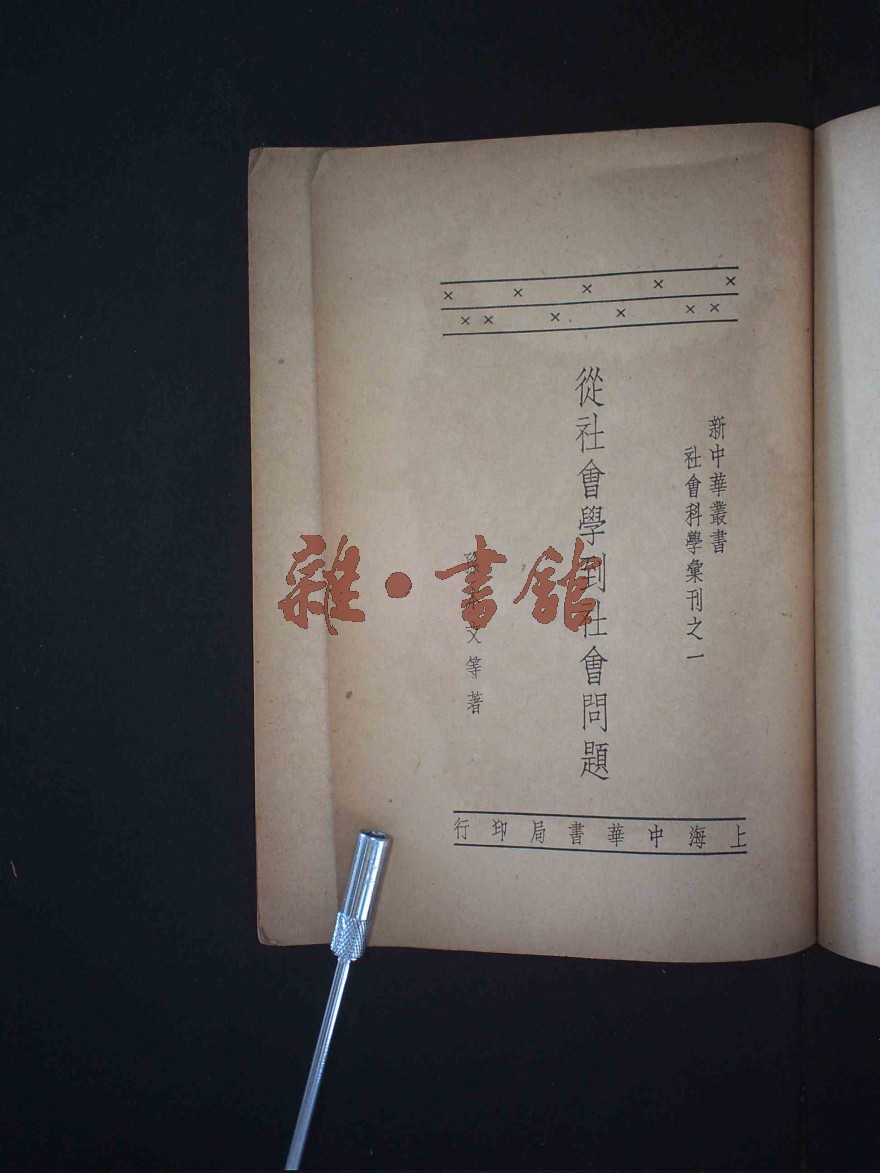 新中華叢書
社會科學彙刊之一
從社會學到社會問題
孫本文等著
上海中華書局印行
雜·書館